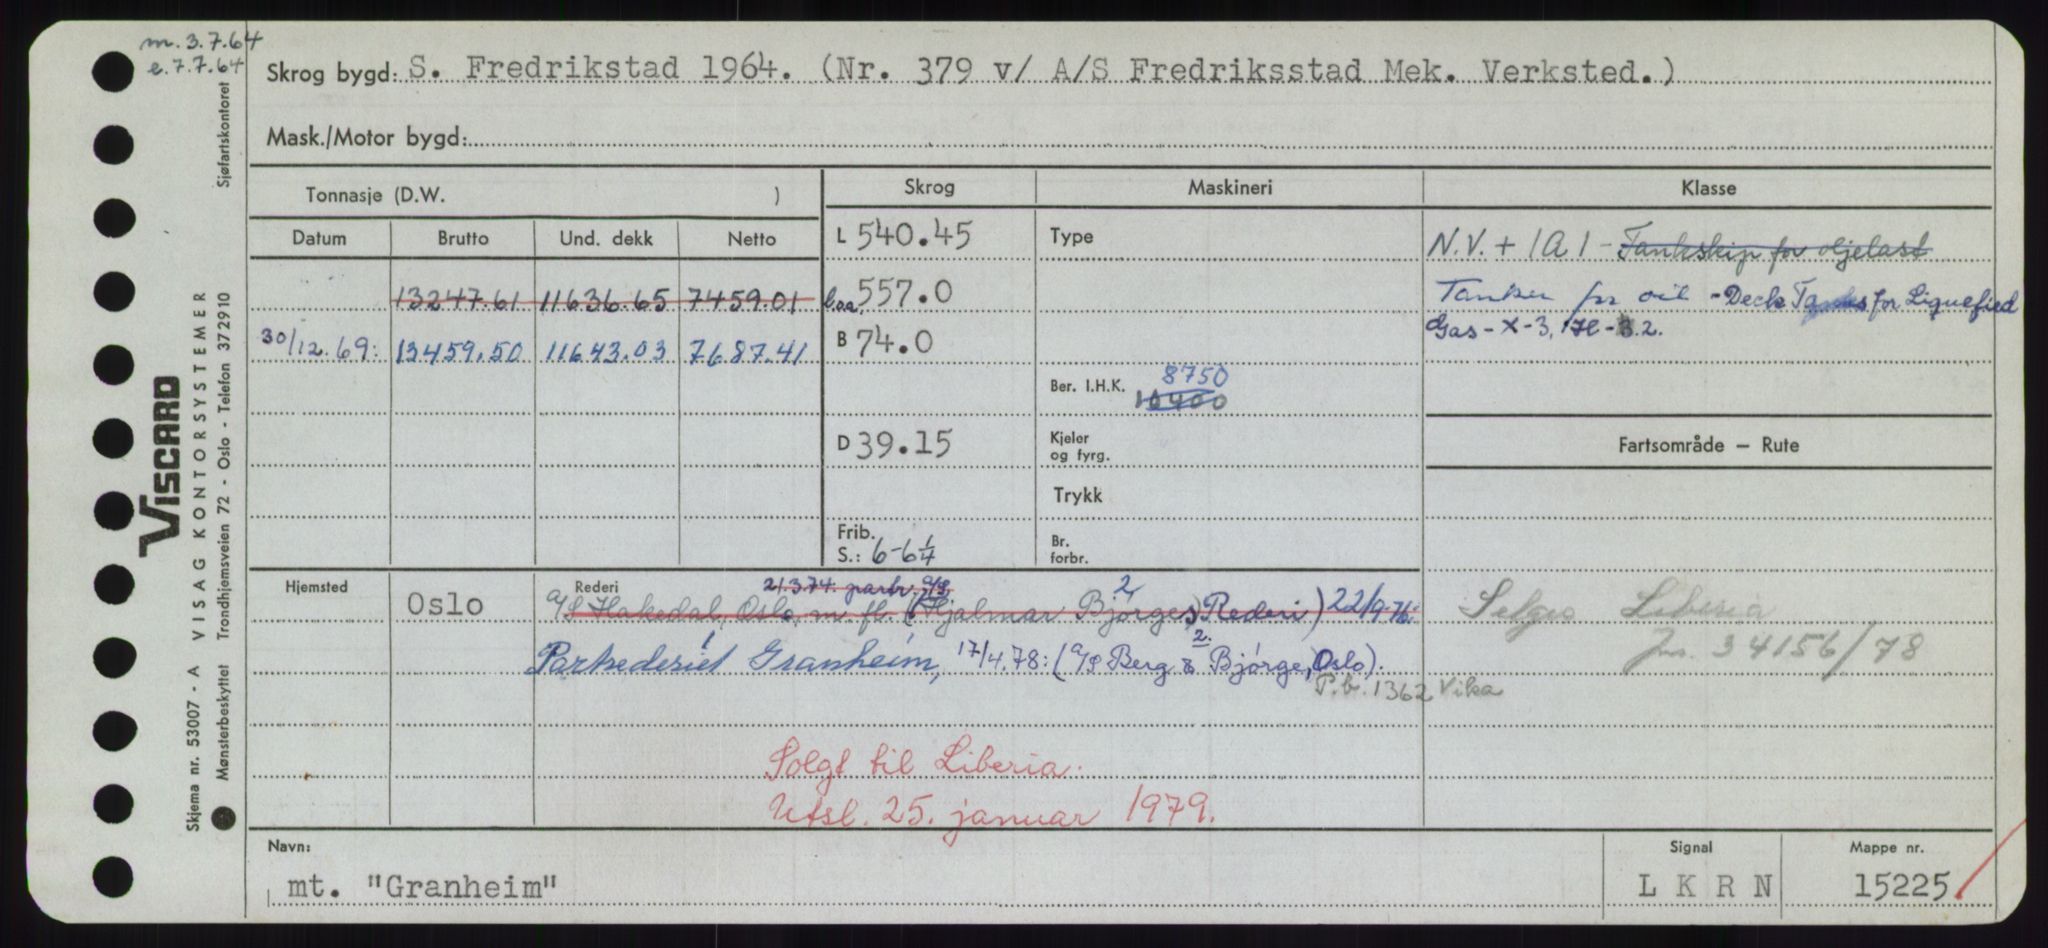 m. 3.7.64
e. 7.7.64
Skrog bygd: S. Fredrikstad 1964. (Nr. 379 v/ A/S Fredriksstad Mek. Verksted.)
Mask./Motor bygd:
Tonnasje (D.W. )
Skrog Maskineri Klasse
Datum Brutto Und. dekk Netto
L 540.45 Type N.V. + 1A1 - Tankskip for oljelast
13247.61 11636.65 7459.01 Loa. 557.0 Tanker for oil - Deck Tanks for Liquefied
Gas - X - 3.
30/12.69: 13459.50 11643.03 7687.41 B 74.0
Ber. I.H.K. 8750
10400
D 39.15 Kjeler og fyrg. Fartsområde – Rute
Trykk
Frib.
S.: 6-6¼ Br. forbr.
Hjemsted Oslo Rederi 21.3.74. partr. A/S
A/S Hakedal, Oslo, m. fl. (Hjalmar Bjørges Rederi) 22/9-76: Selges Liberia
Partrederiet Granheim, 17/4.78: (A/S Berg & Bjørge, Oslo). Jnr. 34156/78
P.b. 1362 Vika
Solgt til Liberia.
Utsl. 25. januar 1979.
Navn: Signal Mappe nr.
mt. "Granheim" L K R N 15225
VISCARD
Skjema nr. 53007 - A VISAG KONTORSYSTEMER Sjøfartskontoret
Mønsterbeskyttet Trondhjemsveien 72 - Oslo - Telefon 372910